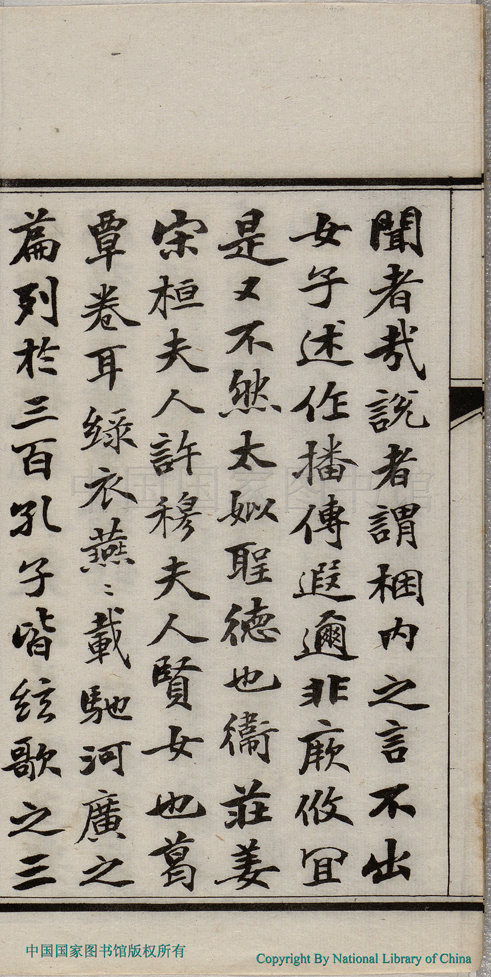 聞者哉說者謂梱内之言不出
女子述作播傳遐邇非厥攸宜
是又不然太姒聖德也衞莊姜
宋桓夫人許穆夫人賢女也葛
覃卷耳綠衣燕〻載馳河廣之
篇列於三百孔子皆絃歌之三
中国国家图书馆
中国国家图书馆版权所有
Copyright By National Library of China